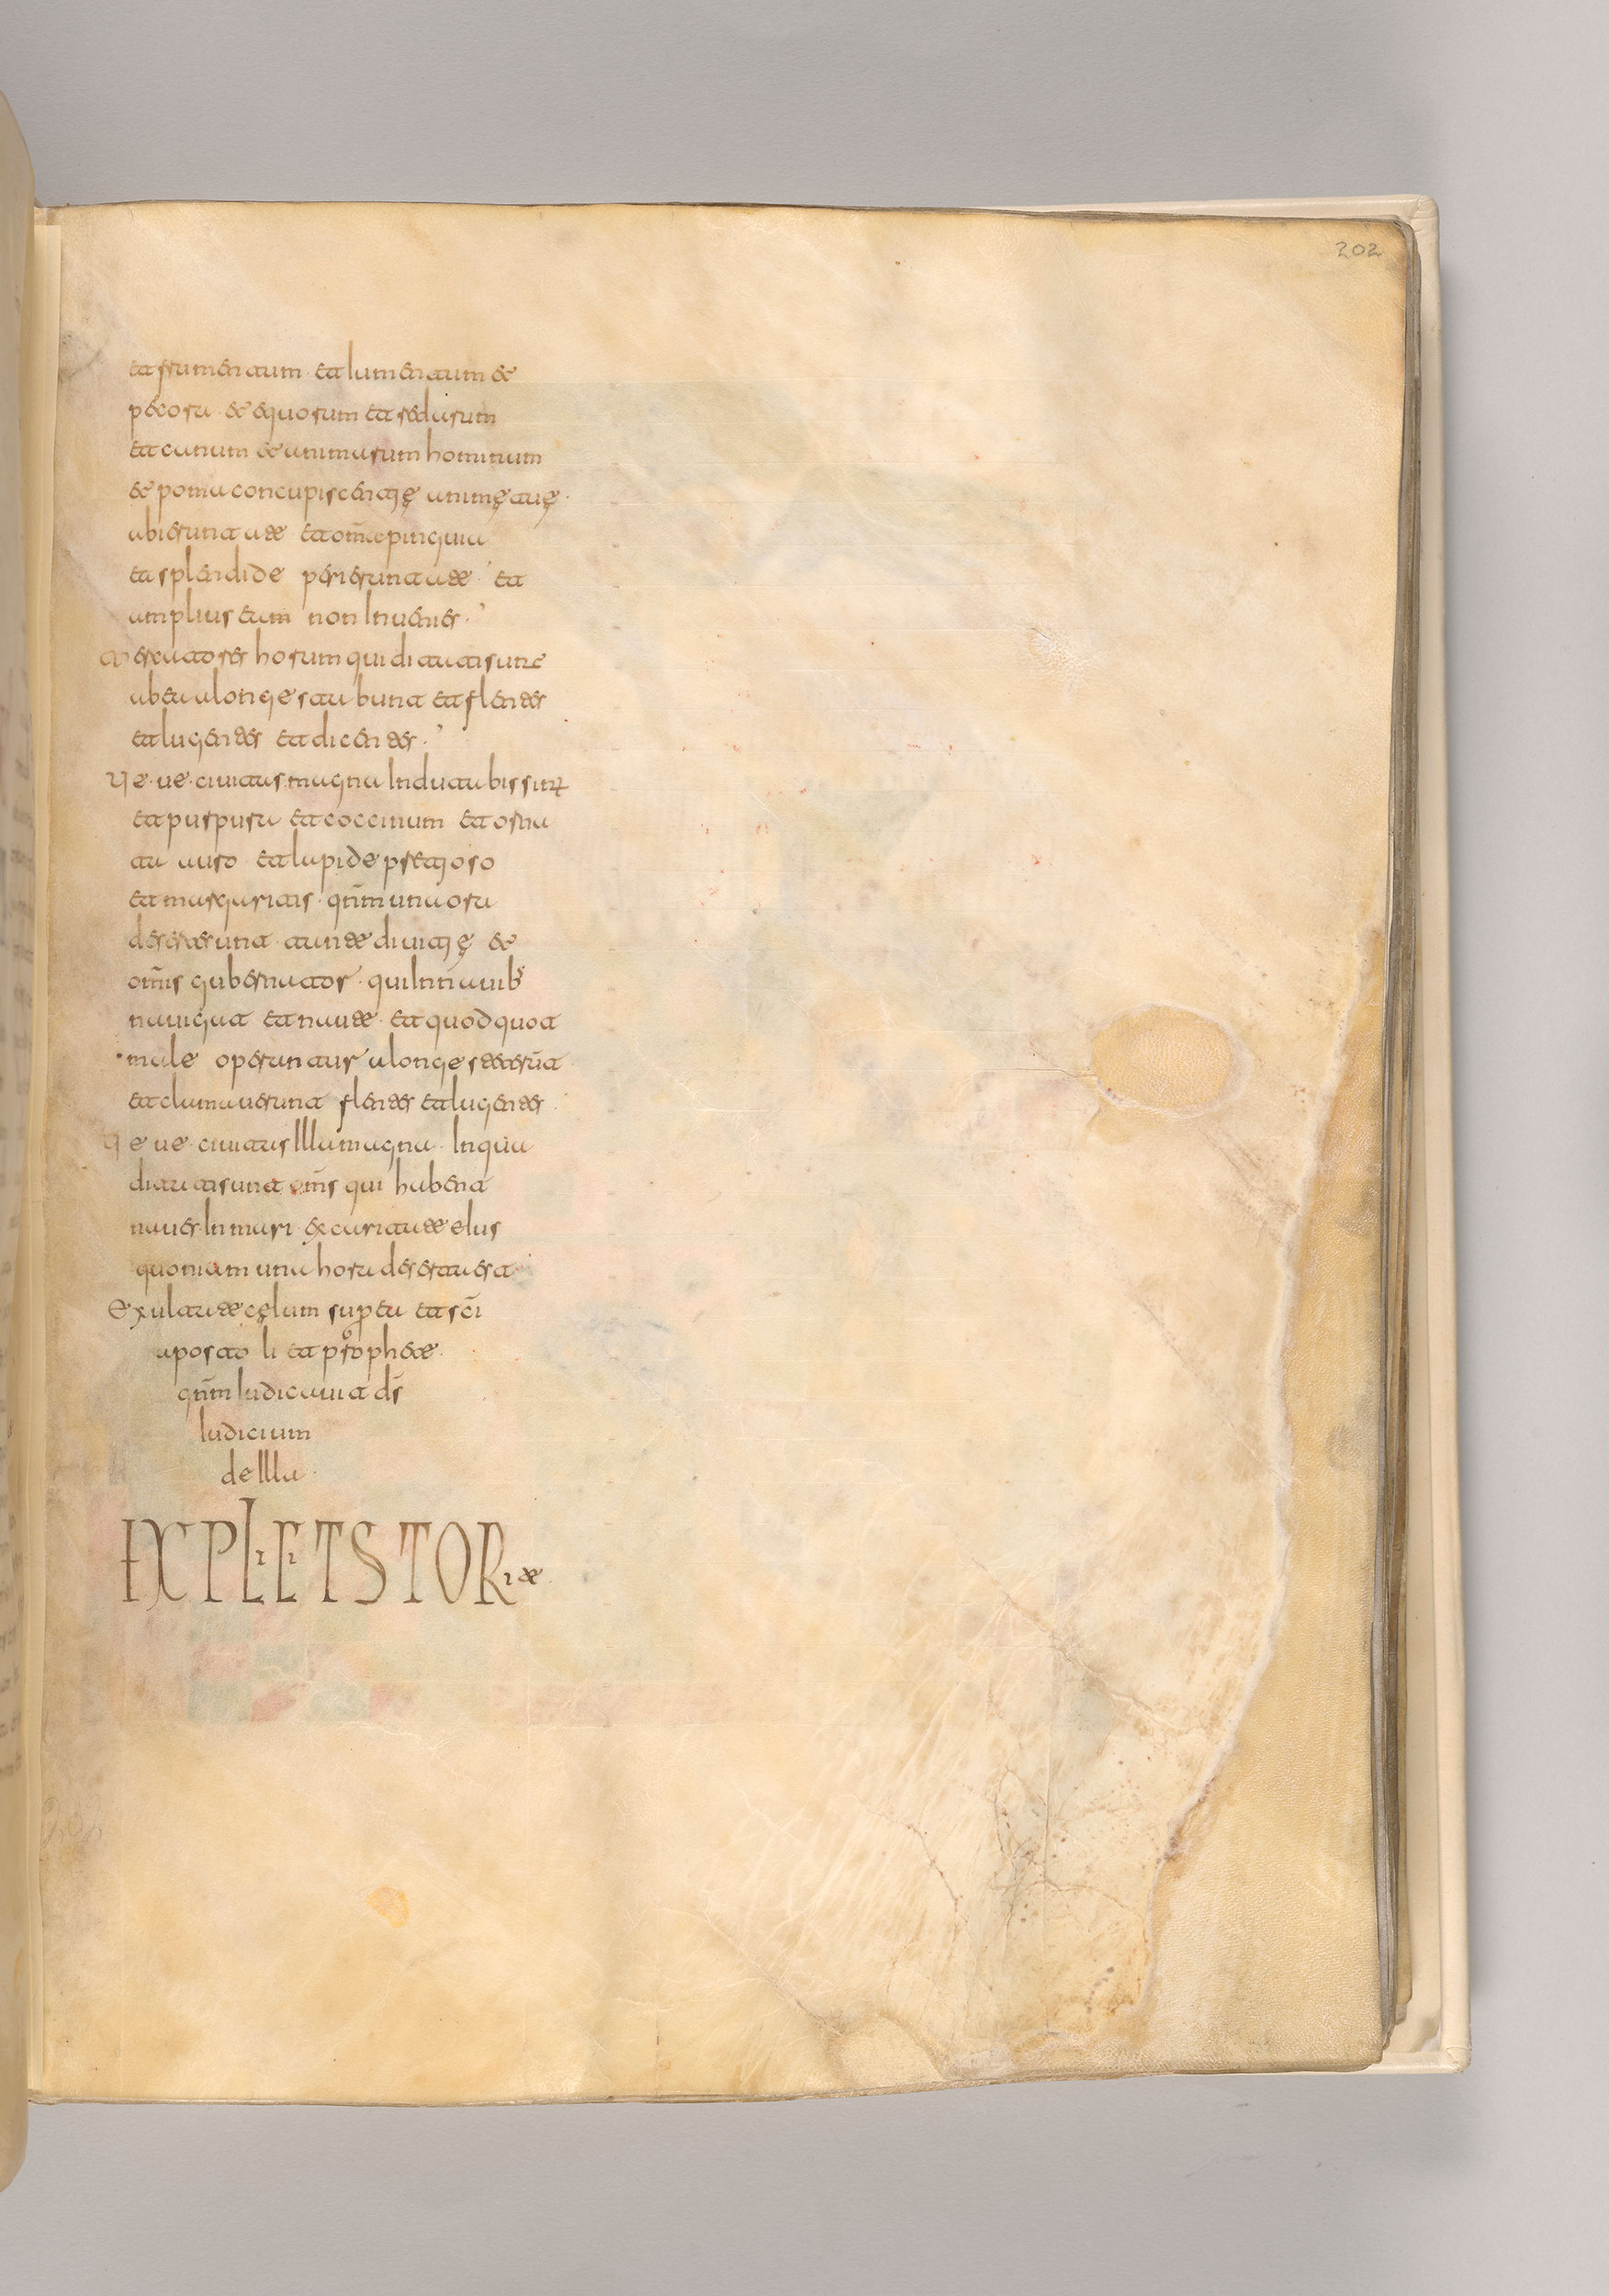 202
et frumentum et iumentum &
pecora & equorum et redarum
et carum & animarum hominum
& poma concupiscentię animę tuę.
abierunt a te et om̄a pinguia
et splendide perierunt a te et
amplius eum non Inuenies.
Mercatores horum qui ditati sunt
ab ea a longe stabunt et flentes
et lugentes et dicentes.
Ve. ue. ciuitas magna Induta bissinū
et purpura et coccinum et orna
ta auro et lapide pretioso
et margaritis. qnm̄ una ora
desertę sunt tante diuitię &
om̄is gubernator. qui In nauib;
nauigat et naute et quod quot
male operantur a longe steterūt
et clamauerunt flentes et lugentes
Ve ue ciuitas Illa magna In qua
ditati sunt om̄s qui habent
naues In mari ex caritate eIus
quoniam una hora deserta est
Exulta te cęlum super ea et sci
aposto li et prophete
qnm̄ Iudicauit ds̄
Iudicium
de Illa
EXPLICIT STORiæ